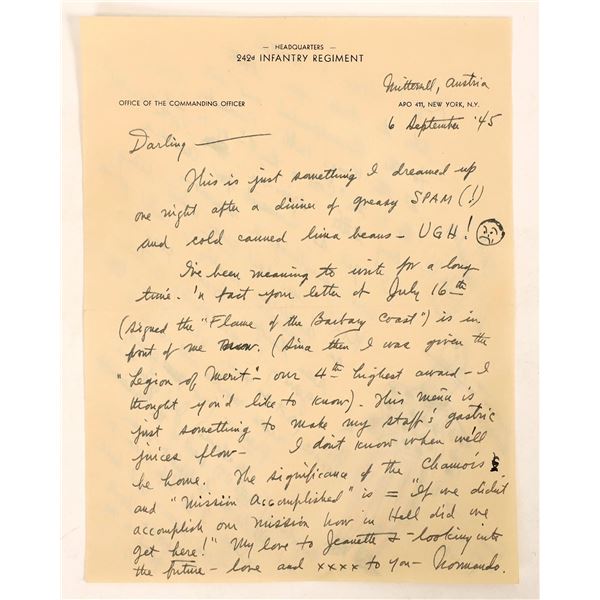 — HEADQUARTERS —
242d INFANTRY REGIMENT
Mittersill, Austria
OFFICE OF THE COMMANDING OFFICER
APO 411, NEW YORK, N.Y.
6 September '45
Darling —
This is just something I dreamed up
one night after a dinner of greasy SPAM (!)
and cold canned lima beans - UGH!
I've been meaning to write for a long
time. 'n fact your letter of July 16th
(signed the "Flame of the Barbary Coast") is in
front of me now. (Since then I was given the
"Legion of Merit" - our 4th highest award - I
thought you'd like to know). This menu is
just something to make my staff's gastric
juices flow - I don't know when we'll
be home. The significance of the Chamois
and "Mission Accomplished" is = "If we didn't
accomplish our mission how in Hell did we
get here!" My love to Jeanette & - looking into
the future - love and xxxx to you - Normando.